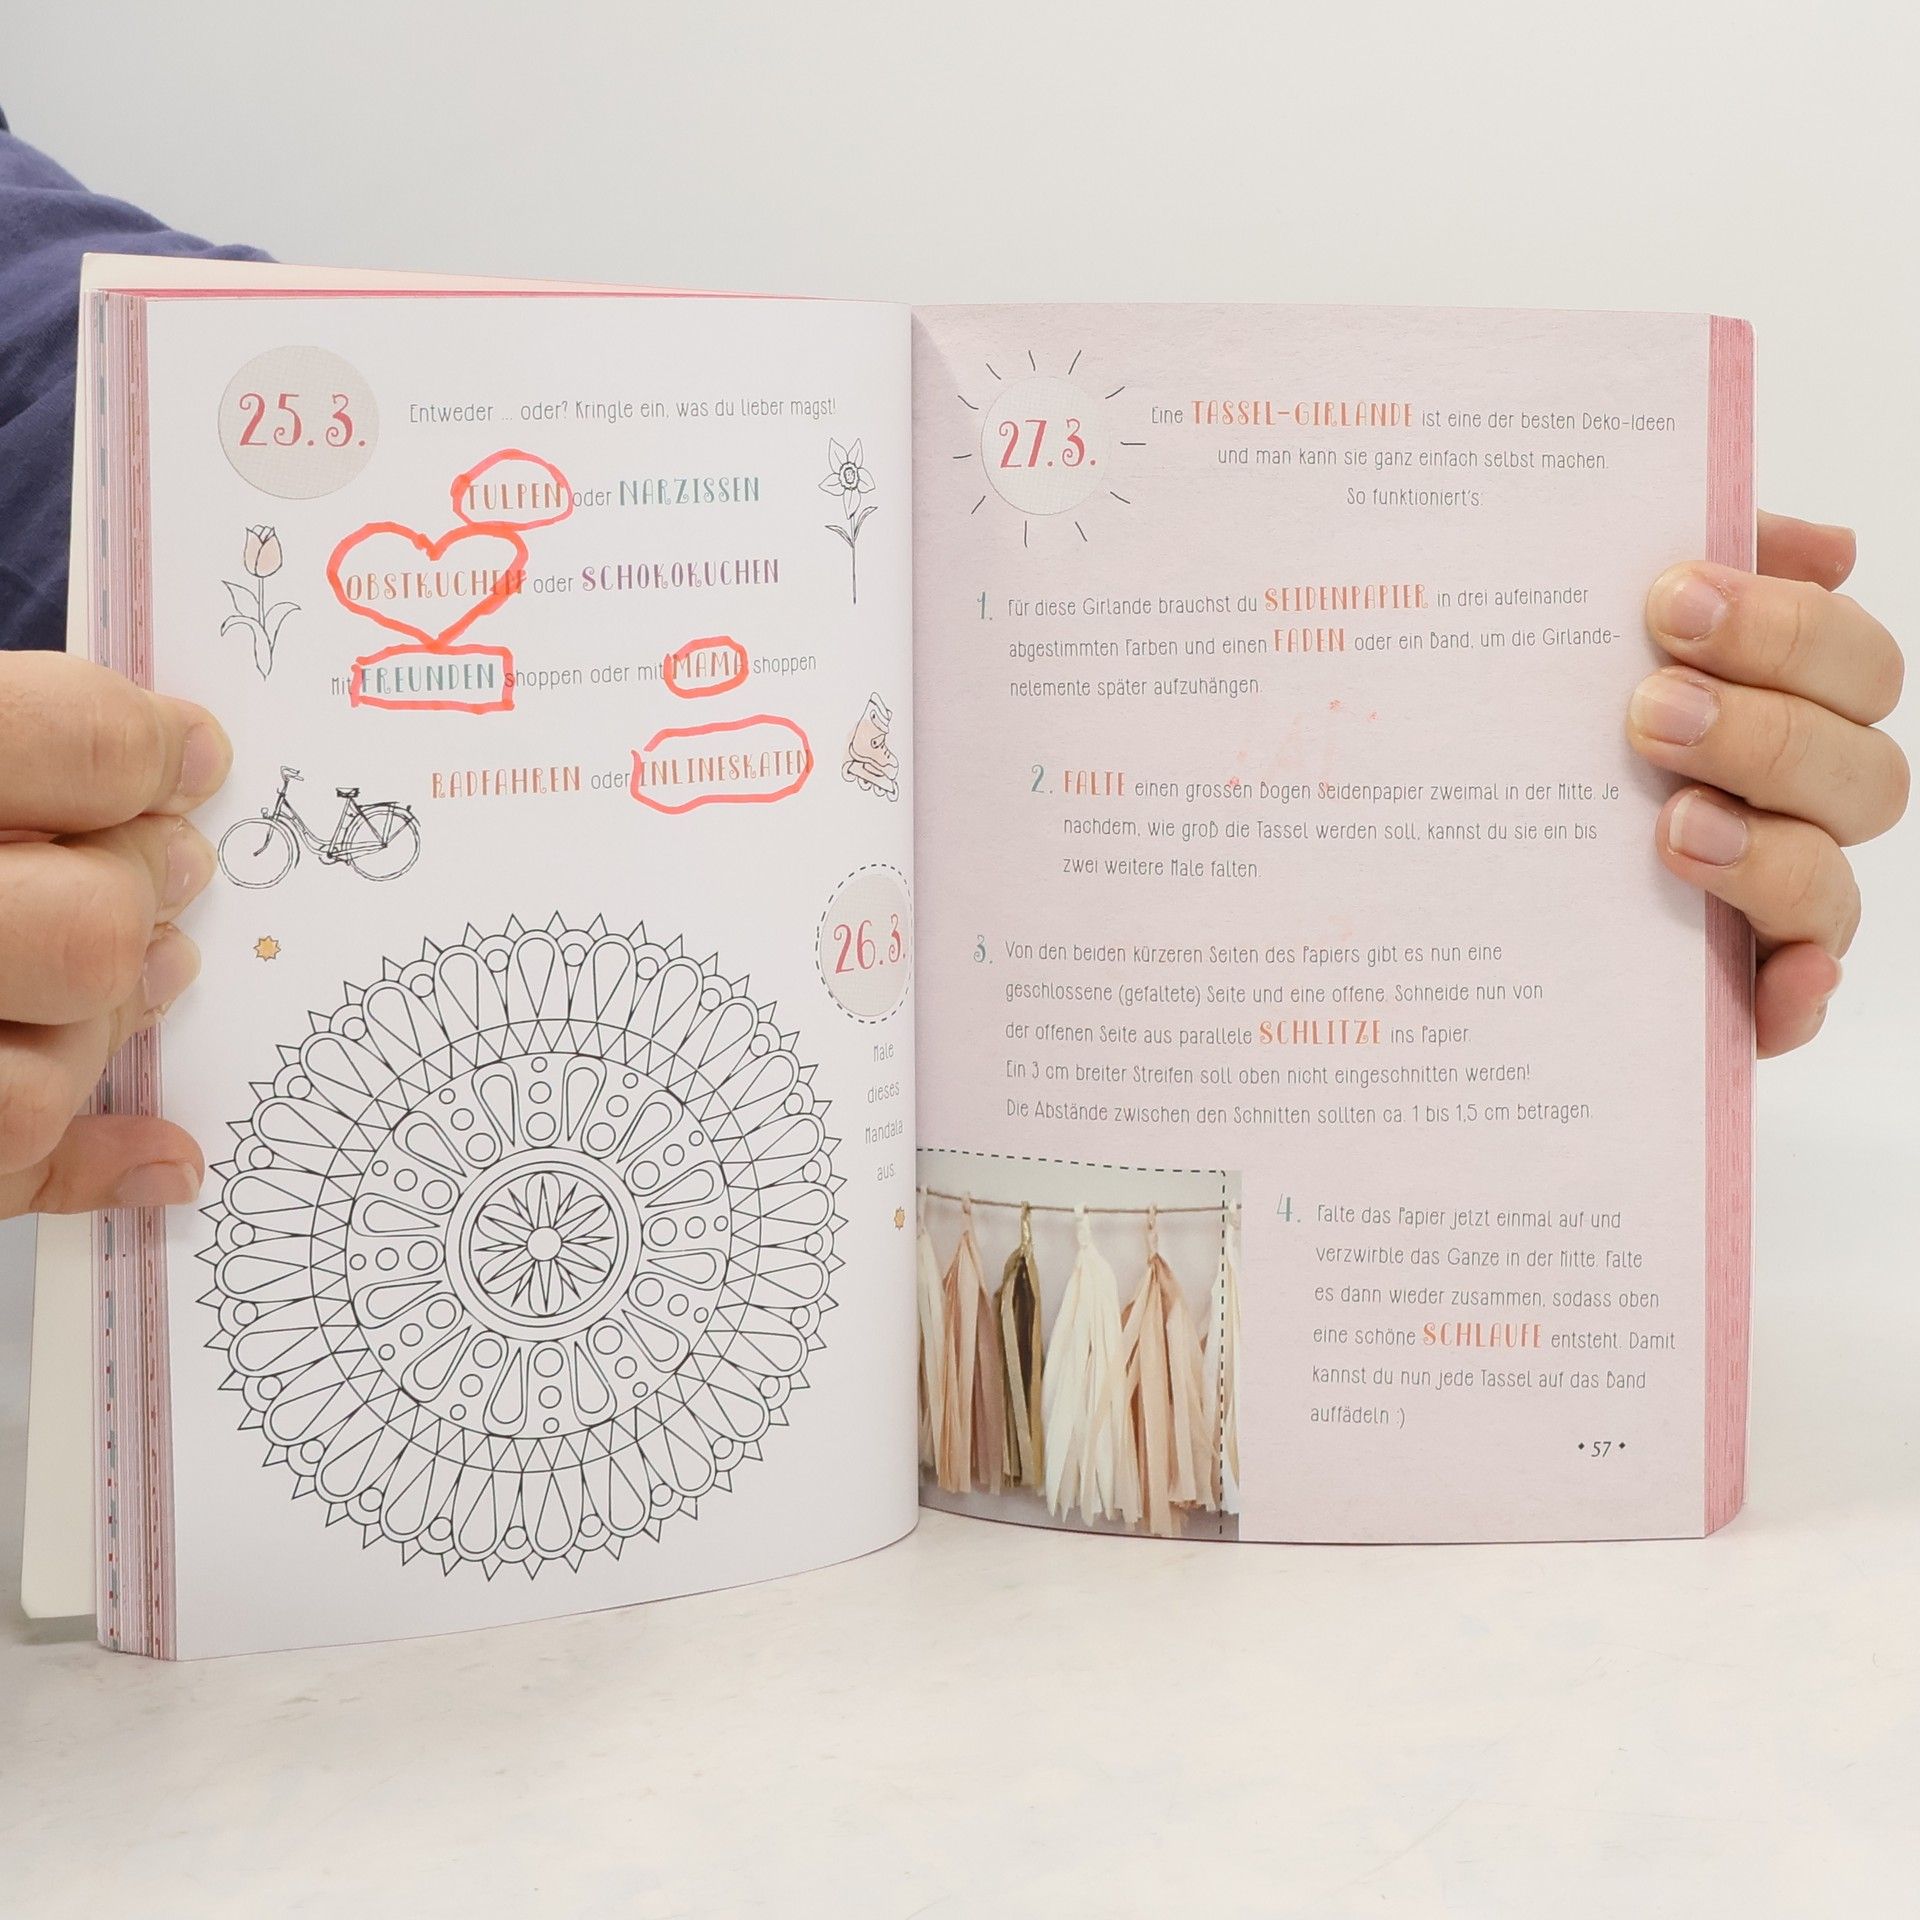 25.3.
Entweder ... oder? Kringle ein, was du lieber magst!
TULPEN oder NARZISSEN
OBSTKUCHEN oder SCHOKOKUCHEN
Mit FREUNDEN shoppen oder mit MAMA shoppen
RADFAHREN oder INLINESKATEN
26.3.
Male
dieses
Mandala
aus
27.3.
Eine TASSEL-GIRLANDE ist eine der besten Deko-Ideen
und man kann sie ganz einfach selbst machen.
So funktioniert's:
1. Für diese Girlande brauchst du SEIDENPAPIER in drei aufeinander
abgestimmten Farben und einen FADEN oder ein Band, um die Girlande-
nelemente später aufzuhängen.
2. FALTE einen grossen Bogen Seidenpapier zweimal in der Mitte. Je
nachdem, wie groß die Tassel werden soll, kannst du sie ein bis
zwei weitere Male falten.
3. Von den beiden kürzeren Seiten des Papiers gibt es nun eine
geschlossene (gefaltete) Seite und eine offene. Schneide nun von
der offenen Seite aus parallele SCHLITZE ins Papier.
Ein 3 cm breiter Streifen soll oben nicht eingeschnitten werden!
Die Abstände zwischen den Schnitten sollten ca. 1 bis 1,5 cm betragen.
4. Falte das Papier jetzt einmal auf und
verzwirble das Ganze in der Mitte. Falte
es dann wieder zusammen, sodass oben
eine schöne SCHLAUFE entsteht. Damit
kannst du nun jede Tassel auf das Band
auffädeln :)
• 57 •